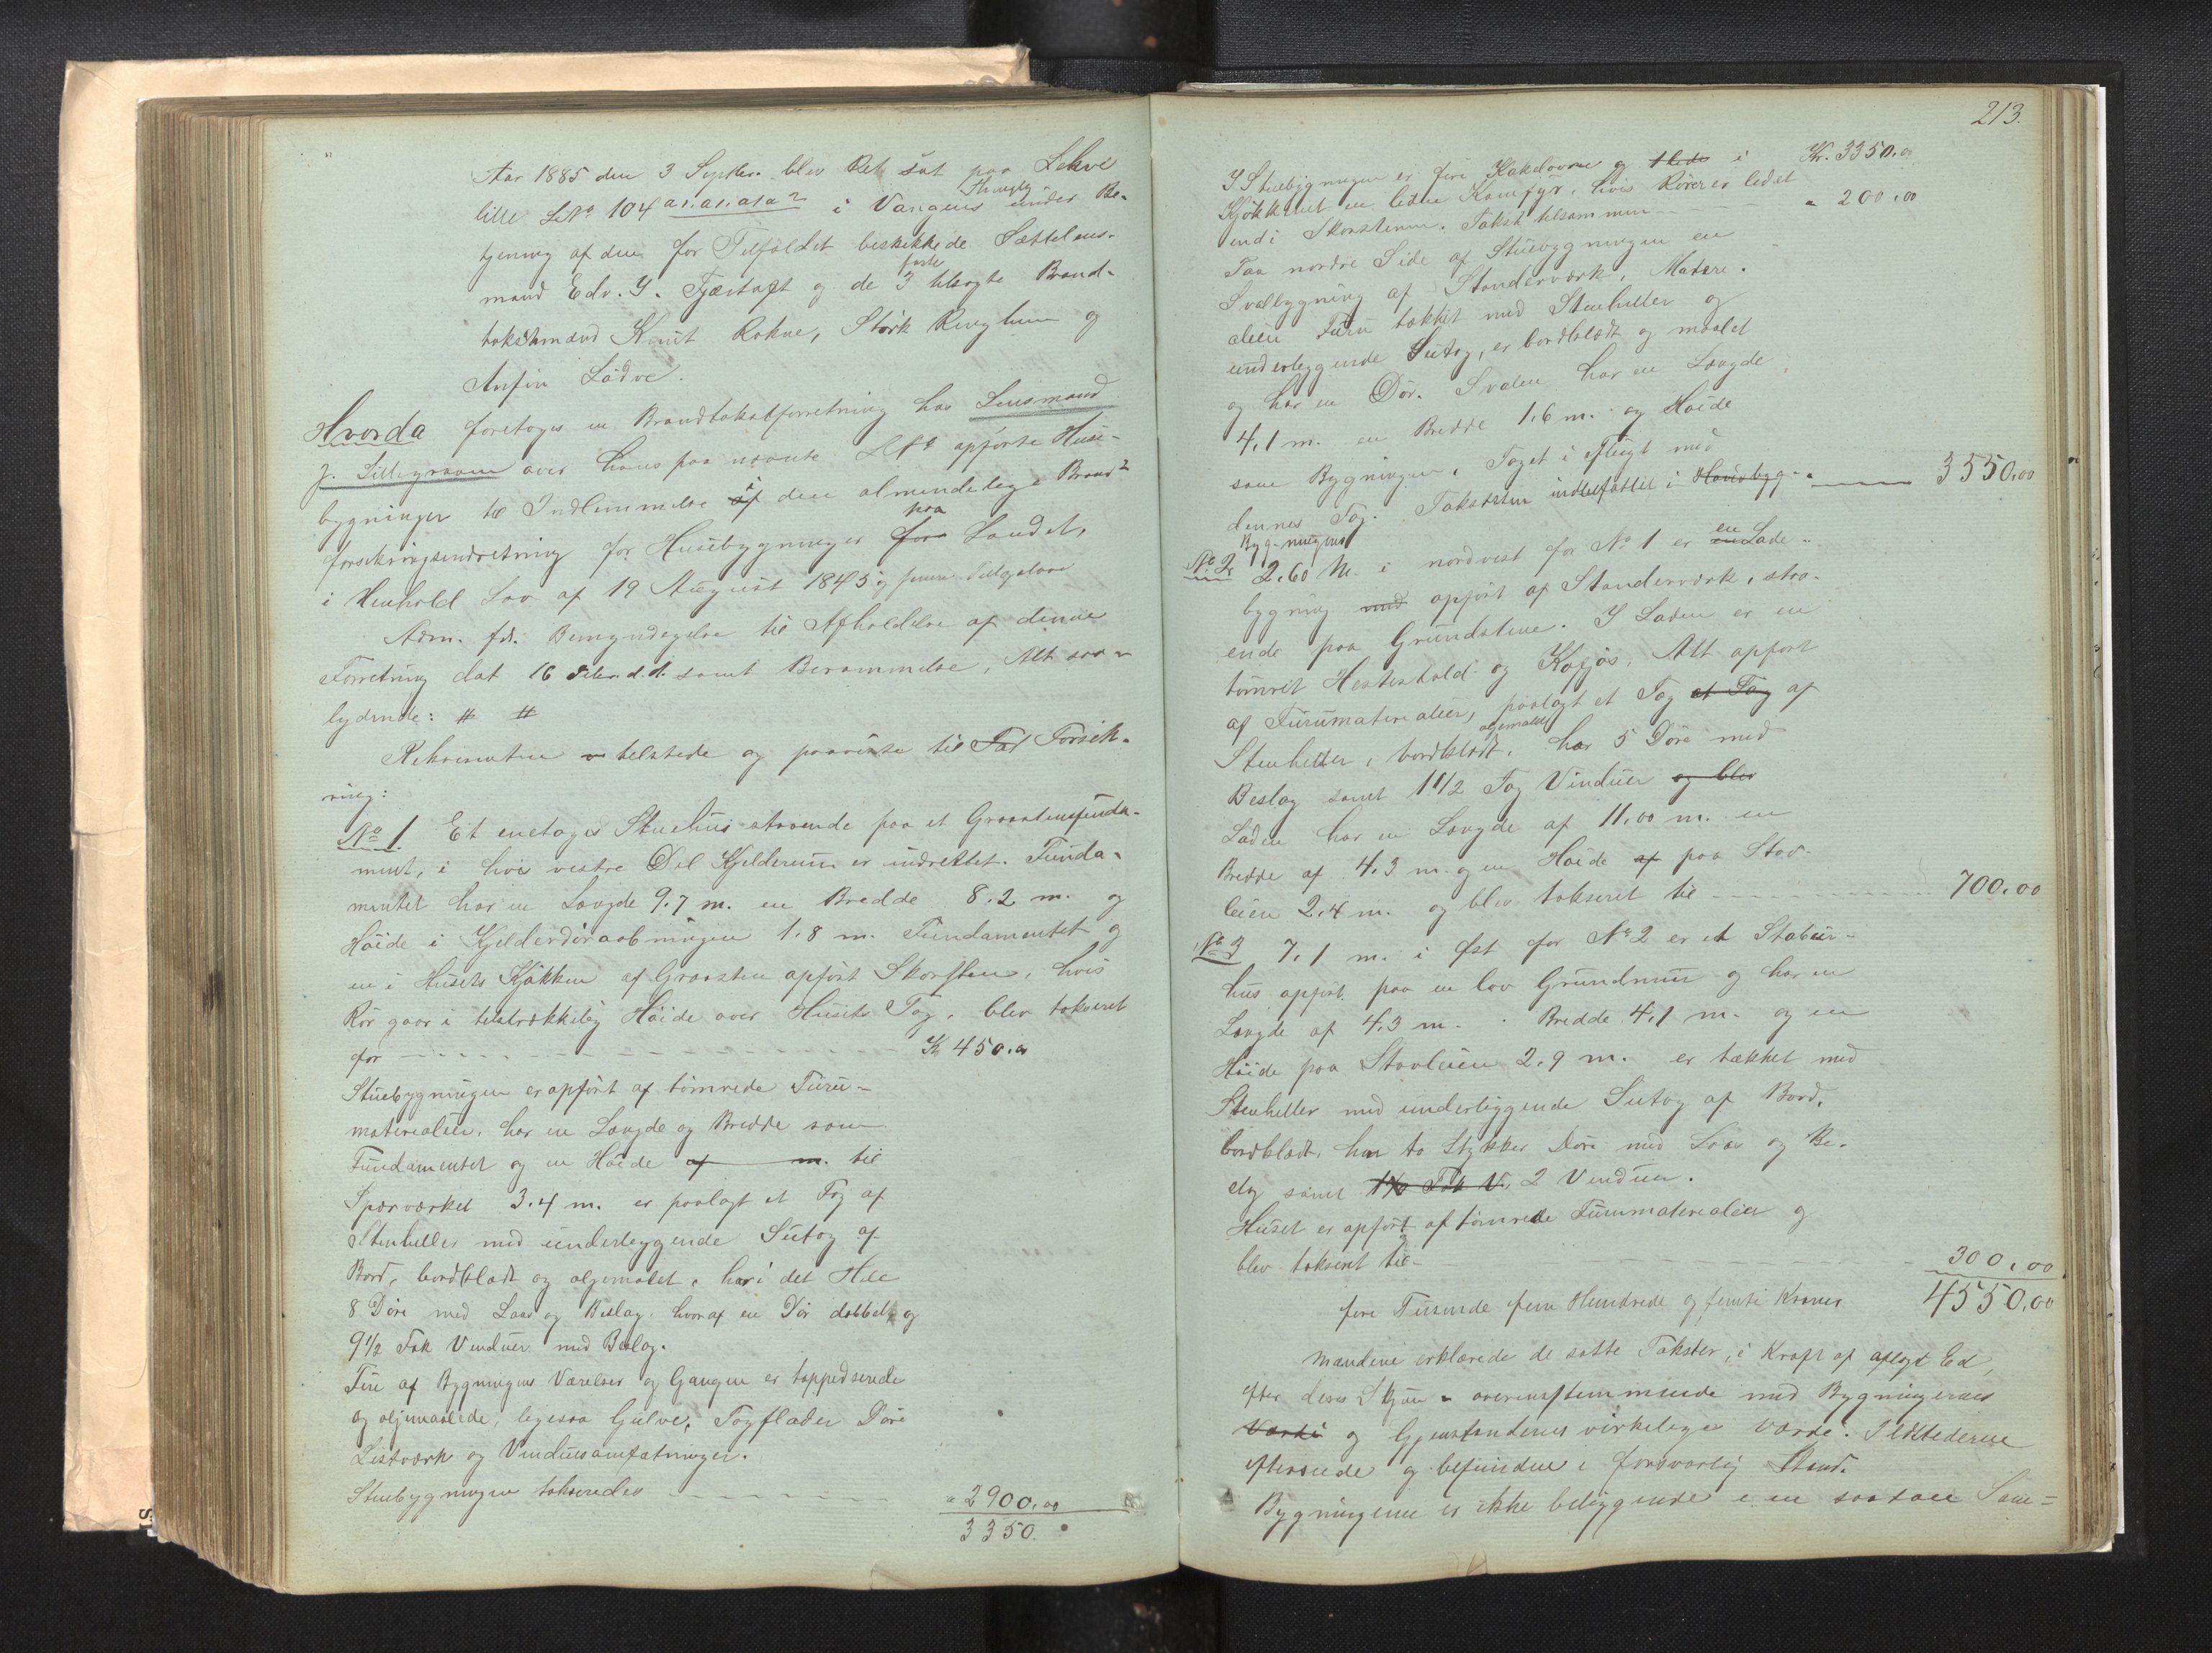 Aar 1885 den 3 Septbr. blev Ret sat paa Lekve
lille LNo 104 a1.a1.a1a2 i Vangens Thinglg under Be-
tjening af den for Tilfældet beskikkede Sættelens-
mand Edv. J. Fjærtoft og de 3 faste udvalgte Brand-
takstmænd Knut Rokne, Stark Ringheim og
Anfin Lødve.
Hvorda foretoges en Brandtakstforretning hos Lensmand
J. Lillegraven over hans paa nævnte LNo opførte Huse-
bygninger til Indlemmelse i den almindelige Brand-
forsikringsindretning for Husebygninger for paa Landet,
i Henhold Lov af 19 August 1845 og senere Tillægslove
Adm. fdl. Bemyndigelse til Afholdelse af denne
Forretning dat 16 Febr. d.A. samt Berammelse, Alt saa-
lydende: # #
Rekvirenten tilstede og paaviste til Fad Forsik-
ring:
No 1. Et enetages Stuehus staaende paa et Graastensfunda-
ment, i hvis vestre Del Kjelderrum er indrettet. Funda-
mentet har en Længde 9.7 m. en Bredde 8.2 m. og
Høide i Kjelderdøraabningen 1.8 m. Fundamentet og
en i Husets Kjøkken af Graasten opført Skorsten, hvis
Rør gaar i tilstrækkelig Høide over Husets Tag, blev takseret
for - - - Kr 450.00
Stuebygningen er opført af tømrede Furu-
materialier, har en Længde og Bredde som
Fundamentet og en Høide af m. til
Sparværket 3.4 m. er paalagt et Tag af
Stenheller med underliggende Sutag af
Bord, bordklædt og oljemalet, har i det Hele
8 Døre med Laas og Beslag, hvoraf en Dør dobbelt og
9 1/2 Fak Vinduer med Beslag.
Fire af Bygningens Værelser og Gangen er tappedserede
og oljemalede, ligesaa Gulve, Tagflader Døre
Listværk og Vinduesomfatninger.
Stuebygningen takseredes - - - " 2900.00
3350.
213.
I Stuebygningen er fire Kakelovne og tkede i Kr. 3350.00
Kjøkkenet en liden Komfyr, hvis Rører er ledet
ind i Skorstenen. Takst tilsammen - - " 200.00
Paa nordre Side af Stuebygningen en
Svalbygning af Standerværk, Materi-
aleier Furu tækket med Stenheller og
underliggende Sutag, er bordklædt og maalet
og har en Dør. Svalen har en Længde
4,1 m. en Bredde 1.6 m. og Høide
som Bygningen, Taget i Flugt med
dennes Tag. Taksten indbefattet i Hovedbyg-
Bygningens - 3550,00
No 2. 2.60 M. i nordvest for No 1 er en en Lade-
bygning med opført af Standerværk, staa-
ende paa Grundstene. I Laden er en
tømret Hestestald og Kofjøs, Alt opført
af Furumaterialier, paalagt et Tag et Tag af
Stenheller, bordklædt, oljemalet har 5 Døre med
Beslag samt 1 1/2 Fag Vinduer og blev
Laden har en Længde af 11.00 m. en
Bredde af 4.3 m. og en Høide af paa Stav-
leien 2.4 m. og blev takseret til - - - 700.00
No 3 7.1 m. i øst for No 2 er et Stabur-
hus opført paa en lav Grundmur og har en
Længde af 4.3 m. Bredde 4,1 m. og en
Høide paa Stavleien 2.9 m. er tækket med
Stenheller med underliggende Sutag af Bord,
bordklædt, har to Stykker Døre med Laas og Be-
slag samt 1 1/2 Fak V. 2 Vinduer.
Huset er opført af tømrede Furumaterialier og
blev takseret til - - - 300,00
fire Tusinde fem Hundrede og femti Kroner 4550,00
Mændene erklærede de satte Takster, i Kraft af aflagt Ed,
efter deres Skjøn overensstemmende med Bygningernes
Værdi og Gjenstandenes virkelige Værdi. Ildstederne
eftersaaede og befundne i forsvarlig Stand.
Bygningerne er ikke beliggende i en saadan Sam-